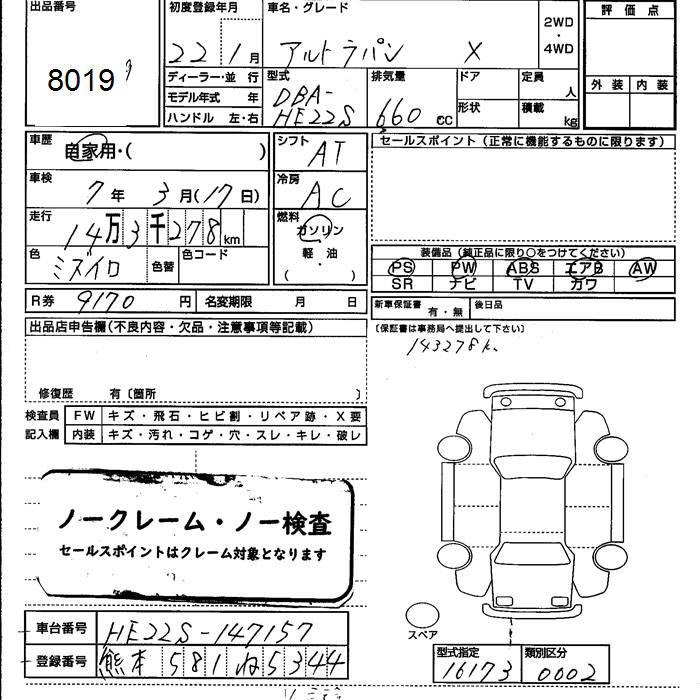 出品番号
8019
初度登録年月
22 1月
車名・グレード
アルトラパン X
2WD
・
4WD
評価点
外装 内装
ディーラー・並 行
モデル年式 年
ハンドル 左・右
型式
DBA-
HE22S
排気量
660 cc
ドア
形状
定員 人
積載 kg
車歴
自家用・( )
車検
7年 3月(17日)
走行
14万3千278km
色
ミズイロ
色替
色コード
シフト
AT
冷房
AC
燃料
ガソリン
・
軽・油
・
( )
セールスポイント(正常に機能するものに限ります)
装備品(純正品に限り○をつけてください)
PS PW ABS エアB AW
SR ナビ TV カワ
R券 9170円 名変期限 月 日
新車保証書 有・無 後日品
〔保証書は事務局へ提出して下さい〕
143278k
出品店申告欄(不良内容・欠品・注意事項等記載)
修復歴 有〔箇所 〕
検査員 FW キズ・飛石・ヒビ割・リペア跡・X要
記入欄 内装 キズ・汚れ・コゲ・穴・スレ・キレ・破レ
ノークレーム・ノー検査
セールスポイントはクレーム対象となります
スペア
車台番号 HE22S-147157
登録番号 熊本 581 ね 5344
型式指定 類別区分
16173 0002